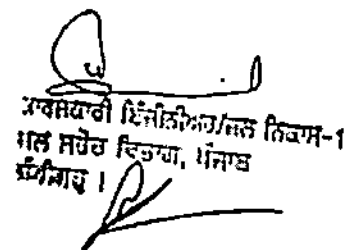 ਕਾਰਜਕਾਰੀ ਇੰਜੀਨੀਅਰ/ਜਲ ਨਿਕਾਸ-1
ਜਲ ਸਰੋਤ ਵਿਭਾਗ, ਪੰਜਾਬ
ਚੰਡੀਗੜ੍ਹ ।